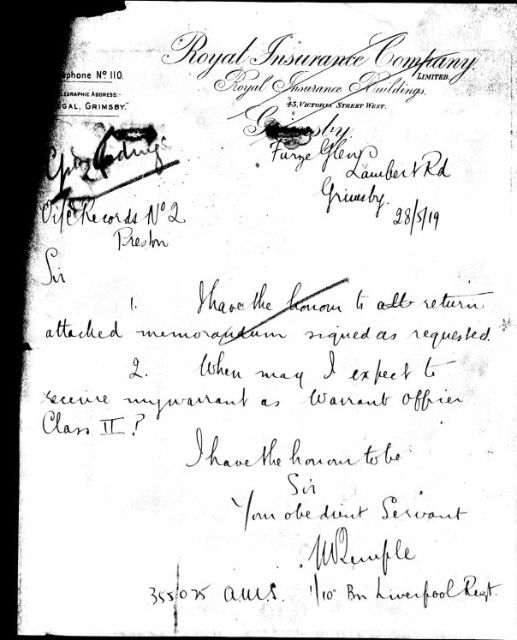 Royal Insurance Company
LIMITED.
phone Nº 110.
Royal Insurance Buildings.
LEGRAPHIC ADDRESS:-
EGAL, GRIMSBY."
25, VICTORIA STREET WEST.
Grimsby.
Furze Glen
Lambert Rd
Grimsby.
28/5/19
Records Nº 2
Preston
Sir
1. I have the honour to att return
attached memorandum signed as requested.
2. When may I expect to
receive my warrant as Warrant Officer
Class II?
I have the honour to be
Sir
Your obedient Servant
355075 1/10 Bn Liverpool Regt.